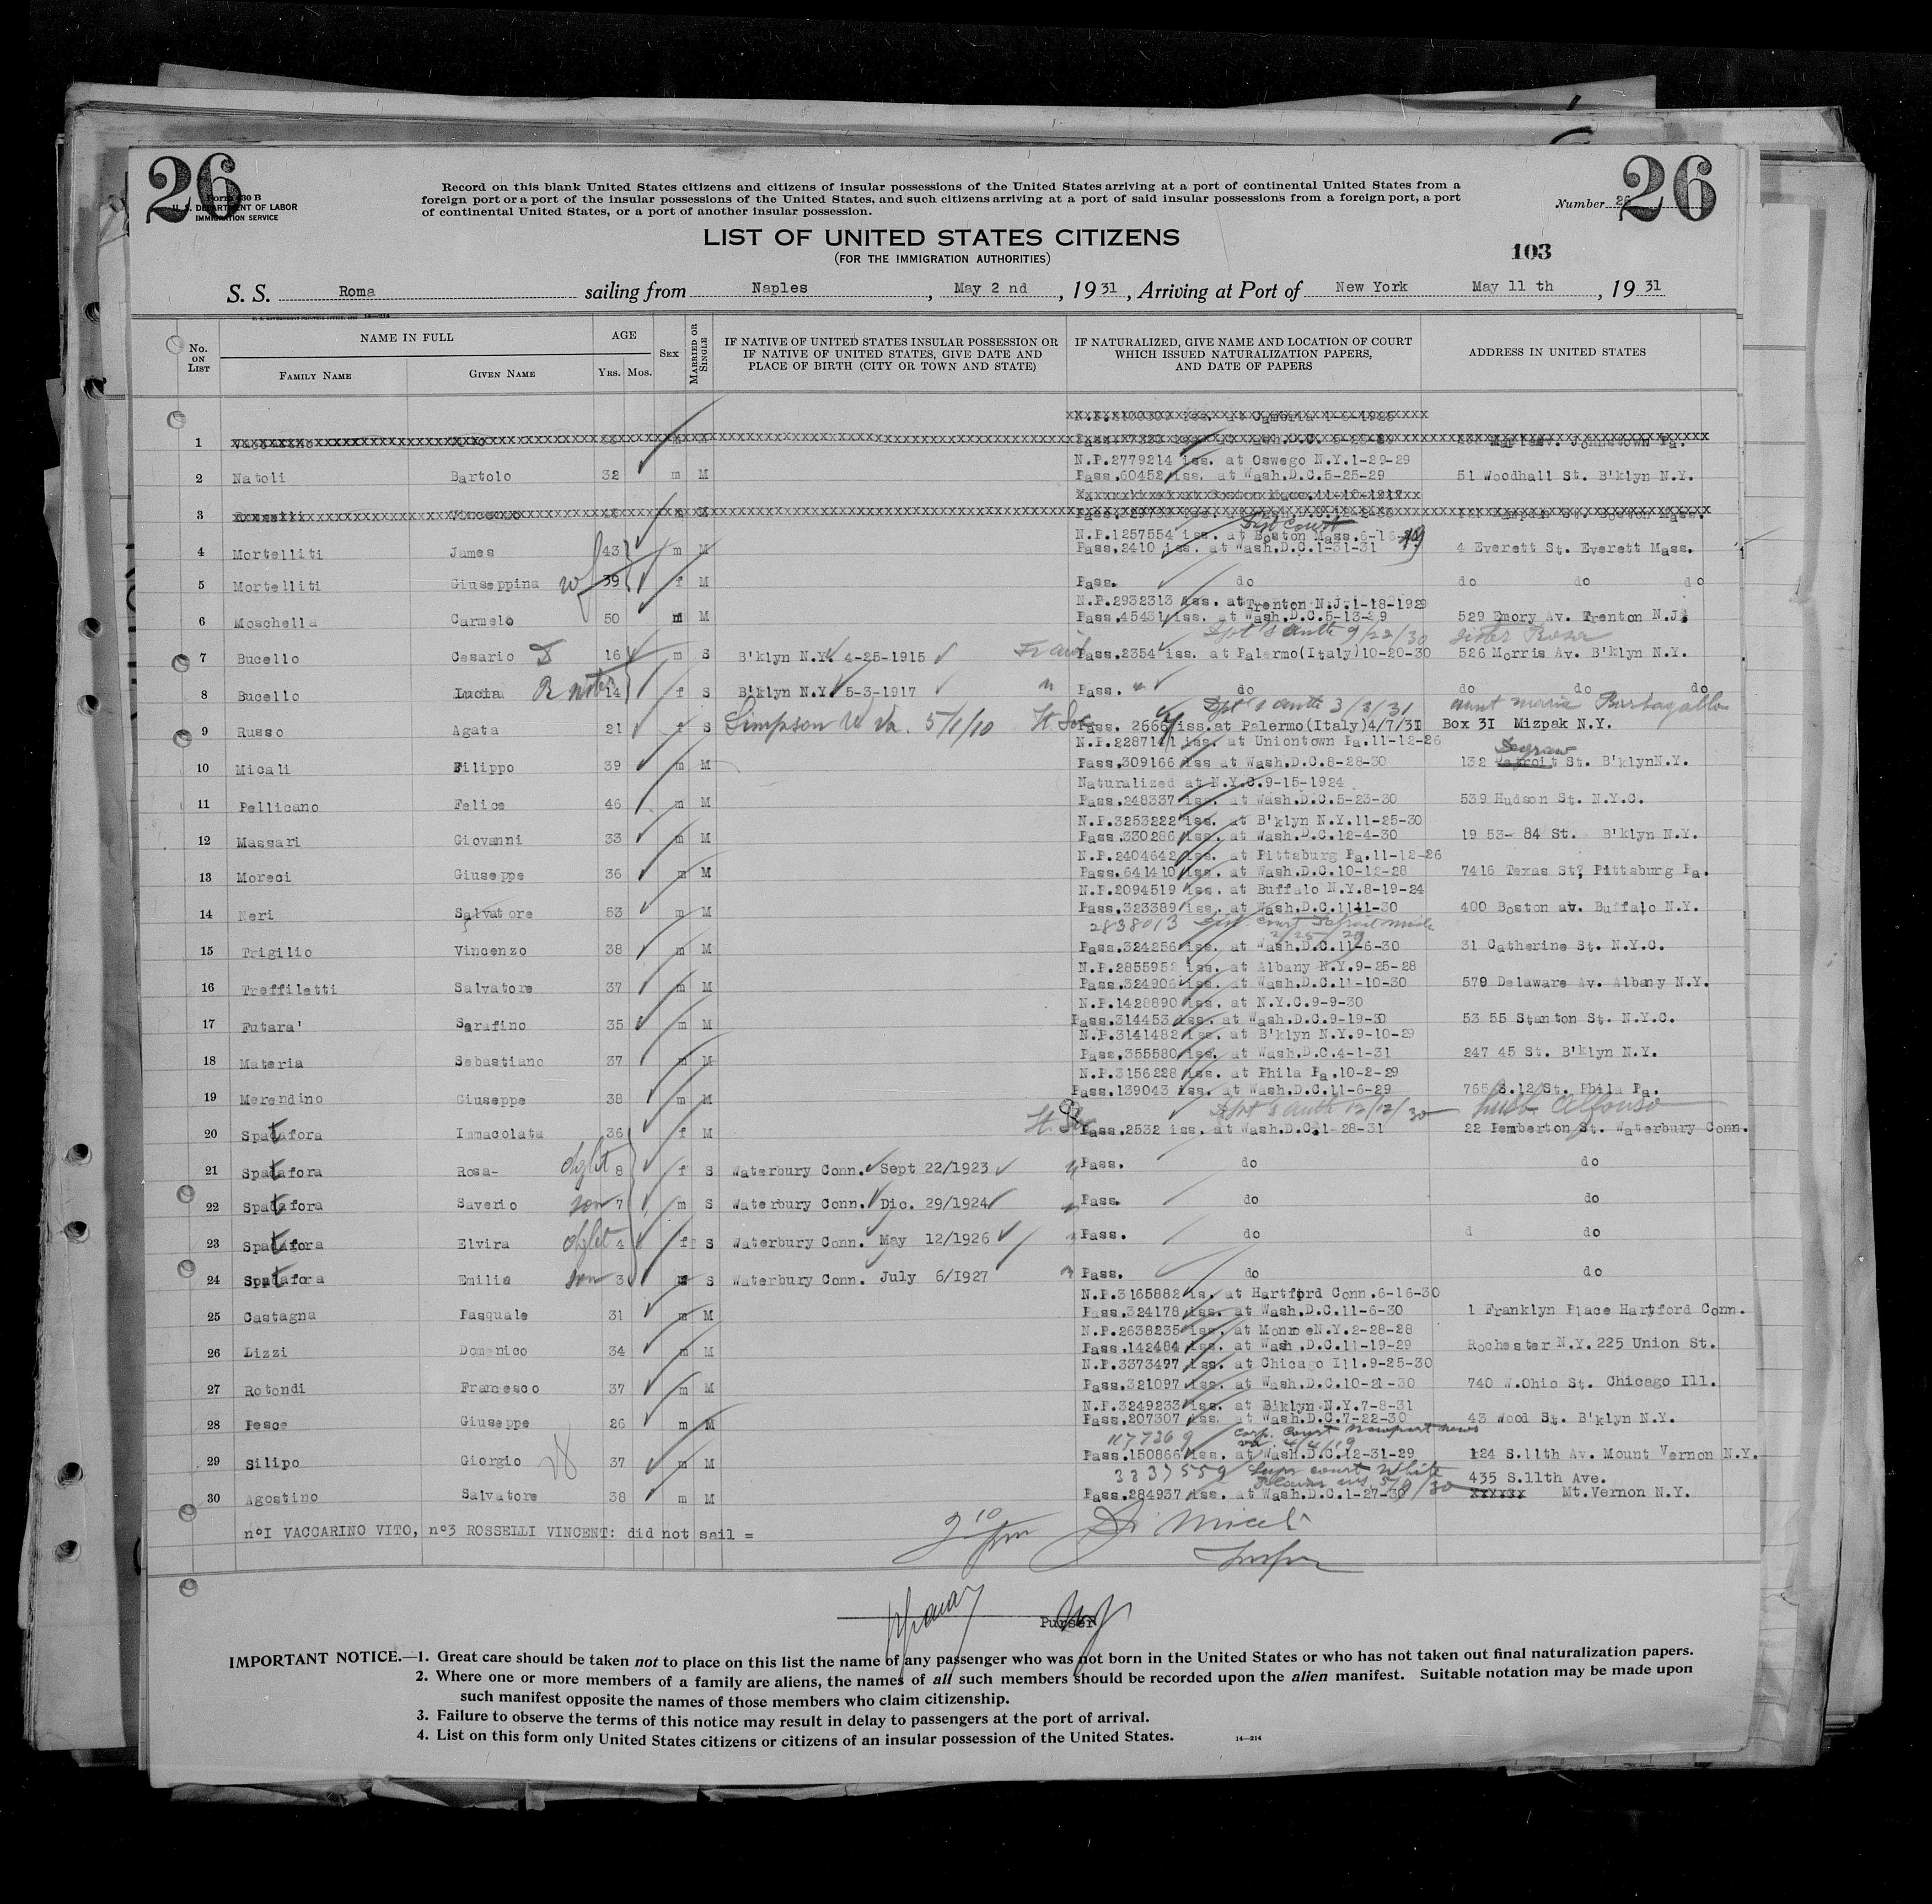 26
26
Form 630 B
U. S. DEPARTMENT OF LABOR
IMMIGRATION SERVICE
Record on this blank United States citizens and citizens of insular possessions of the United States arriving at a port of continental United States from a
foreign port or a port of the insular possessions of the United States, and such citizens arriving at a port of said insular possessions from a foreign port, a port
of continental United States, or a port of another insular possession.
Number 26
LIST OF UNITED STATES CITIZENS
(FOR THE IMMIGRATION AUTHORITIES)
103
S. S. Roma sailing from Naples, May 2 nd, 1931, Arriving at Port of New York May 11 th, 1931
No. ON LIST
NAME IN FULL
FAMILY NAME GIVEN NAME
AGE
YRS. MOS.
SEX
MARRIED OR SINGLE
IF NATIVE OF UNITED STATES INSULAR POSSESSION OR
IF NATIVE OF UNITED STATES, GIVE DATE AND
PLACE OF BIRTH (CITY OR TOWN AND STATE)
IF NATURALIZED, GIVE NAME AND LOCATION OF COURT
WHICH ISSUED NATURALIZATION PAPERS,
AND DATE OF PAPERS
ADDRESS IN UNITED STATES
1 Johnstown Pa.
N.P.2779214 iss. at Oswego N.Y.1-29-29
2 Natoli Bartolo 32 m M Pass.60452 iss. at Wash.D.C.5-25-29 51 Woodhall St. B'klyn N.Y.
3 Boston Mass.
N.P.1257554 iss. at Boston Mass.6-16-19
4 Mortelliti James 43 m M Pass.2410 iss. at Wash.D.C.1-31-31 4 Everett St. Everett Mass.
5 Mortelliti Giuseppina wf 39 f M Pass. do do do do
N.P.2932313 iss. at Trenton N.J.1-18-1929
6 Moschella Carmelo 50 m M Pass.45431 iss. at Wash.D.C.5-13-29 529 Emory Av. Trenton N.J.
Dpt's auth 9/22/30 sister Rosa
7 Bucello Cesario 16 m S B'klyn N.Y. 4-25-1915 Pass.2354 iss. at Palermo(Italy)10-20-30 526 Morris Av. B'klyn N.Y.
8 Bucello Lucia 14 f S B'klyn N.Y. 5-3-1917 Pass. " do do do do
Dpt's auth 3/3/31 aunt Maria Barbagallo
9 Russo Agata 21 f S Simpson W Va. 5/1/10 Pass. 2666 iss.at Palermo(Italy)4/7/31 Box 31 Mizpak N.Y.
N.P.2287141 iss. at Uniontown Pa.11-12-26
Degraw
10 Micali Filippo 39 m M Pass.309166 iss at Wash.D.C.8-28-30 132 Detroit St. B'klynN.Y.
Naturalized at N.Y.C.9-15-1924
11 Pellicano Felice 46 m M Pass.248337 iss. at Wash.D.C.5-23-30 539 Hudson St. N.Y.C.
N.P.3253222 iss. at B'klyn N.Y.11-25-30
12 Massari Giovanni 33 m M Pass.330286 iss. at Wash.D.C.12-4-30 19 53- 84 St. B'klyn N.Y.
N.P.2404642 iss. at Pittsburg Pa.11-12-26
13 Moreci Giuseppe 36 m M Pass.641410 iss. at Wash.D.C.10-12-28 7416 Texas St, Pittsburg Pa.
N.P.2094519 iss. at Buffalo N.Y.8-19-24
14 Neri Salvatore 53 m M Pass.323389 iss. at Wash.D.C.11-1-30 400 Boston av. Buffalo N.Y.
2838013 Dist. Court Detroit Mich
2/25/29
15 Trigilio Vincenzo 38 m M Pass.324256 iss. at Wash.D.C.11-6-30 31 Catherine St. N.Y.C.
N.P.2855952 iss. at Albany N.Y.9-25-28
16 Treffiletti Salvatore 37 m M Pass.324906 iss. at Wash.D.C.11-10-30 579 Delaware Av. Albany N.Y.
N.P.1428890 iss. at N.Y.C.9-9-30
17 Futara' Serafino 35 m M Pass.314453 iss. at Wash.D.C.9-19-30 53 55 Stanton St. N.Y.C.
N.P.3141482 iss. at B'klyn N.Y.9-10-29
18 Materia Sebastiano 37 m M Pass.355580 iss. at Wash.D.C.4-1-31 247 45 St. B'klyn N.Y.
N.P.3156228 iss. at Phila Pa.10-2-29
19 Merendino Giuseppe 38 m M Pass.139043 iss. at Wash.D.C.11-6-29 765 S.12 St. Phila Pa.
Dpt's auth 12/12/30 husb Alfonso
20 Spatafora Immacolata 36 f M Pass.2532 iss. at Wash.D.C.1-28-31 22 Pemberton St. Waterbury Conn.
21 Spatafora Rosa- 8 f S Waterbury Conn. Sept 22/1923 Pass. do do
22 Spatafora Saverio son 7 m S Waterbury Conn. Dic. 29/1924 Pass. do do
23 Spatafora Elvira 4 f S Waterbury Conn. May 12/1926 Pass. do d do
24 Spatafora Emilio son 3 m S Waterbury Conn. July 6/1927 Pass. do do
N.P.3165882 is. at Hartford Conn.6-16-30
25 Castagna Pasquale 31 m M Pass.324178 iss. at Wash.D.C.11-6-30 1 Franklyn Place Hartford Conn.
N.P.2638235 iss. at Monroe N.Y.2-28-28
26 Lizzi Domenico 34 m M Pass.142484 iss. at Wash.D.C.11-19-29 Rochester N.Y.225 Union St.
N.P.3373497 iss. at Chicago Ill.9-25-30
27 Rotondi Francesco 37 m M Pass.321097 iss. at Wash.D.C.10-21-30 740 W.Ohio St. Chicago Ill.
N.P.3249233 iss. at Biklyn N.Y.7-8-31
28 Pesce Giuseppe 26 m M Pass.207307 iss. at Wash.D.C.7-22-30 43 Wood St. B'klyn N.Y.
1177369 Corp. Court Newport News
Va. 4/4/19
29 Silipo Giorgio 37 m M Pass.150866 iss. at Wash.D.C.12-31-29 124 S.11th Av. Mount Vernon N.Y.
3237559 Supr court White
Plains NY 5/9/30 435 S.11th Ave.
30 Agostino Salvatore 38 m M Pass.284937 iss. at Wash.D.C.1-27-30 Mt.Vernon N.Y.
n°I VACCARINO VITO, n°3 ROSSELLI VINCENT: did not sail =
Purser
IMPORTANT NOTICE.—1. Great care should be taken not to place on this list the name of any passenger who was not born in the United States or who has not taken out final naturalization papers.
2. Where one or more members of a family are aliens, the names of all such members should be recorded upon the alien manifest. Suitable notation may be made upon
such manifest opposite the names of those members who claim citizenship.
3. Failure to observe the terms of this notice may result in delay to passengers at the port of arrival.
4. List on this form only United States citizens or citizens of an insular possession of the United States.
14—214